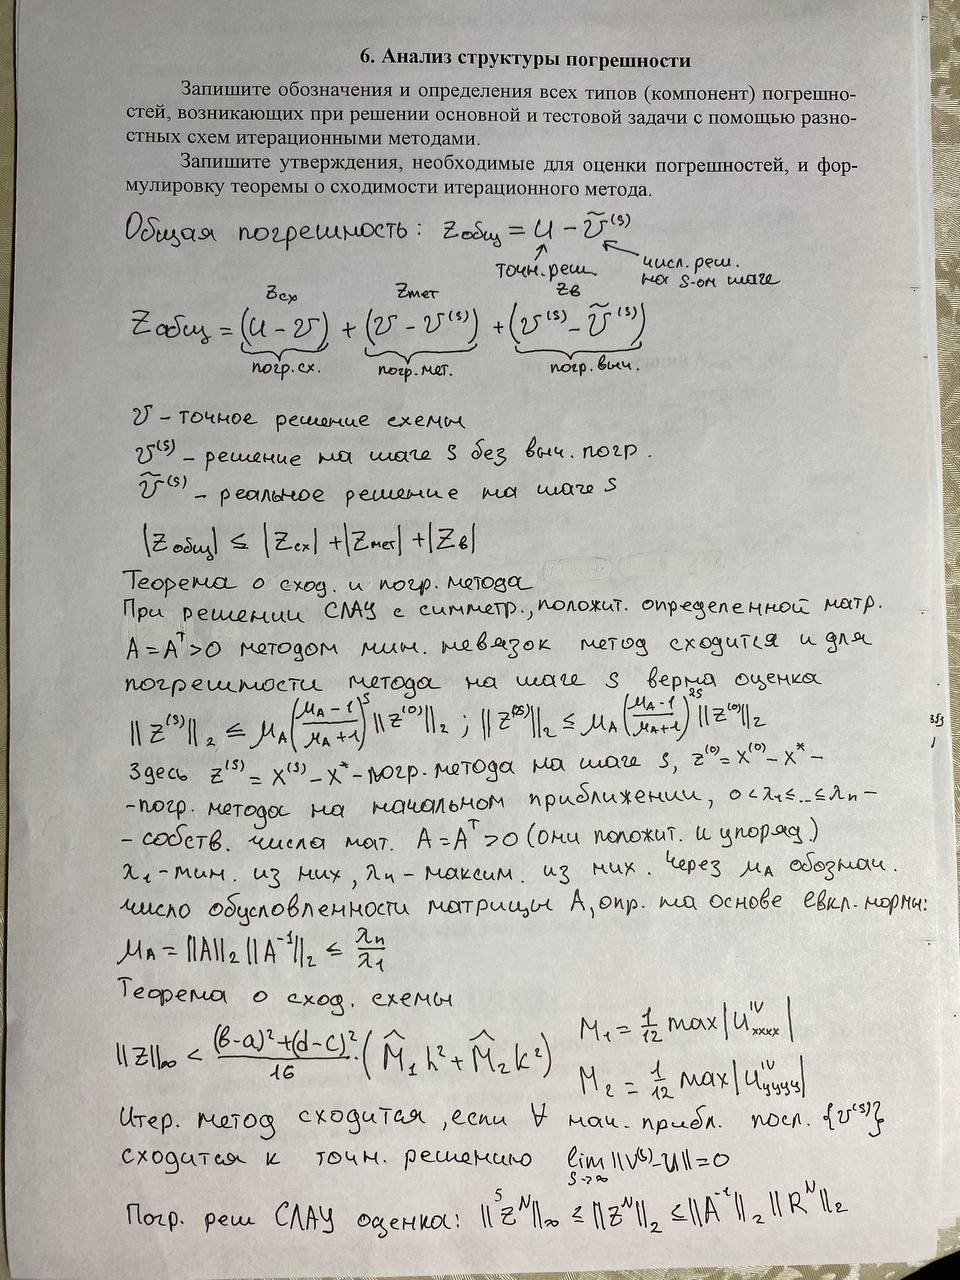 6. Анализ структуры погрешности
Запишите обозначения и определения всех типов (компонент) погрешно-
стей, возникающих при решении основной и тестовой задачи с помощью разно-
стных схем итерационными методами.
Запишите утверждения, необходимые для оценки погрешностей, и фор-
мулировку теоремы о сходимости итерационного метода.
Общая погрешность: Zобщ = u − ṽ⁽ˢ⁾
точн. реш. числ. реш.
на s-ом шаге
Zсх Zмет Zв
Zобщ = (u − v) + (v − v⁽ˢ⁾) + (v⁽ˢ⁾ − ṽ⁽ˢ⁾)
погр. сх. погр. мет. погр. выч.
v – точное решение схемы
v⁽ˢ⁾ – решение на шаге s без выч. погр.
ṽ⁽ˢ⁾ – реальное решение на шаге s
|Zобщ| ≤ |Zсх| + |Zмет| + |Zв|
Теорема о сход. и погр. метода
При решении СЛАУ с симметр., положит. определенной матр.
A = Aᵀ > 0 методом мин. невязок метод сходится и для
погрешности метода на шаге s верна оценка
||z⁽ˢ⁾||₂ ≤ μA((μA − 1)/(μA + 1))ˢ ||z⁽⁰⁾||₂ ; ||z⁽²ˢ⁾||₂ ≤ μA((μA − 1)/(μA + 1))²ˢ ||z⁽⁰⁾||₂
Здесь z⁽ˢ⁾ = x⁽ˢ⁾ − x* – погр. метода на шаге s, z⁽⁰⁾ = x⁽⁰⁾ − x* –
– погр. метода на начальном приближении, 0 < λ₁ ≤ .. ≤ λn –
– собств. числа мат. A = Aᵀ > 0 (они положит. и упоряд.)
λ₁ – мин. из них, λn – максим. из них. Через μA обознач.
число обусловленности матрицы A, опр. на основе евкл. нормы:
μA = ||A||₂ ||A⁻¹||₂ ≤ λn/λ₁
Теорема о сход. схемы
||Z||∞ < ((b-a)² + (d-c)²)/16 · (M̂₁ h² + M̂₂ k²) M₁ = 1/12 max|uᴵⱽxxxx|
M₂ = 1/12 max|uᴵⱽyyyy|
Итер. метод сходится, если ∀ нач. прибл. посл. {v⁽ˢ⁾}
сходится к точн. решению lim s→∞ ||v⁽ˢ⁾ − u|| = 0
Погр. реш СЛАУ оценка: ||ᔆZᴺ||∞ ≤ ||Zᴺ||₂ ≤ ||A⁻¹||₂ ||Rᴺ||₂